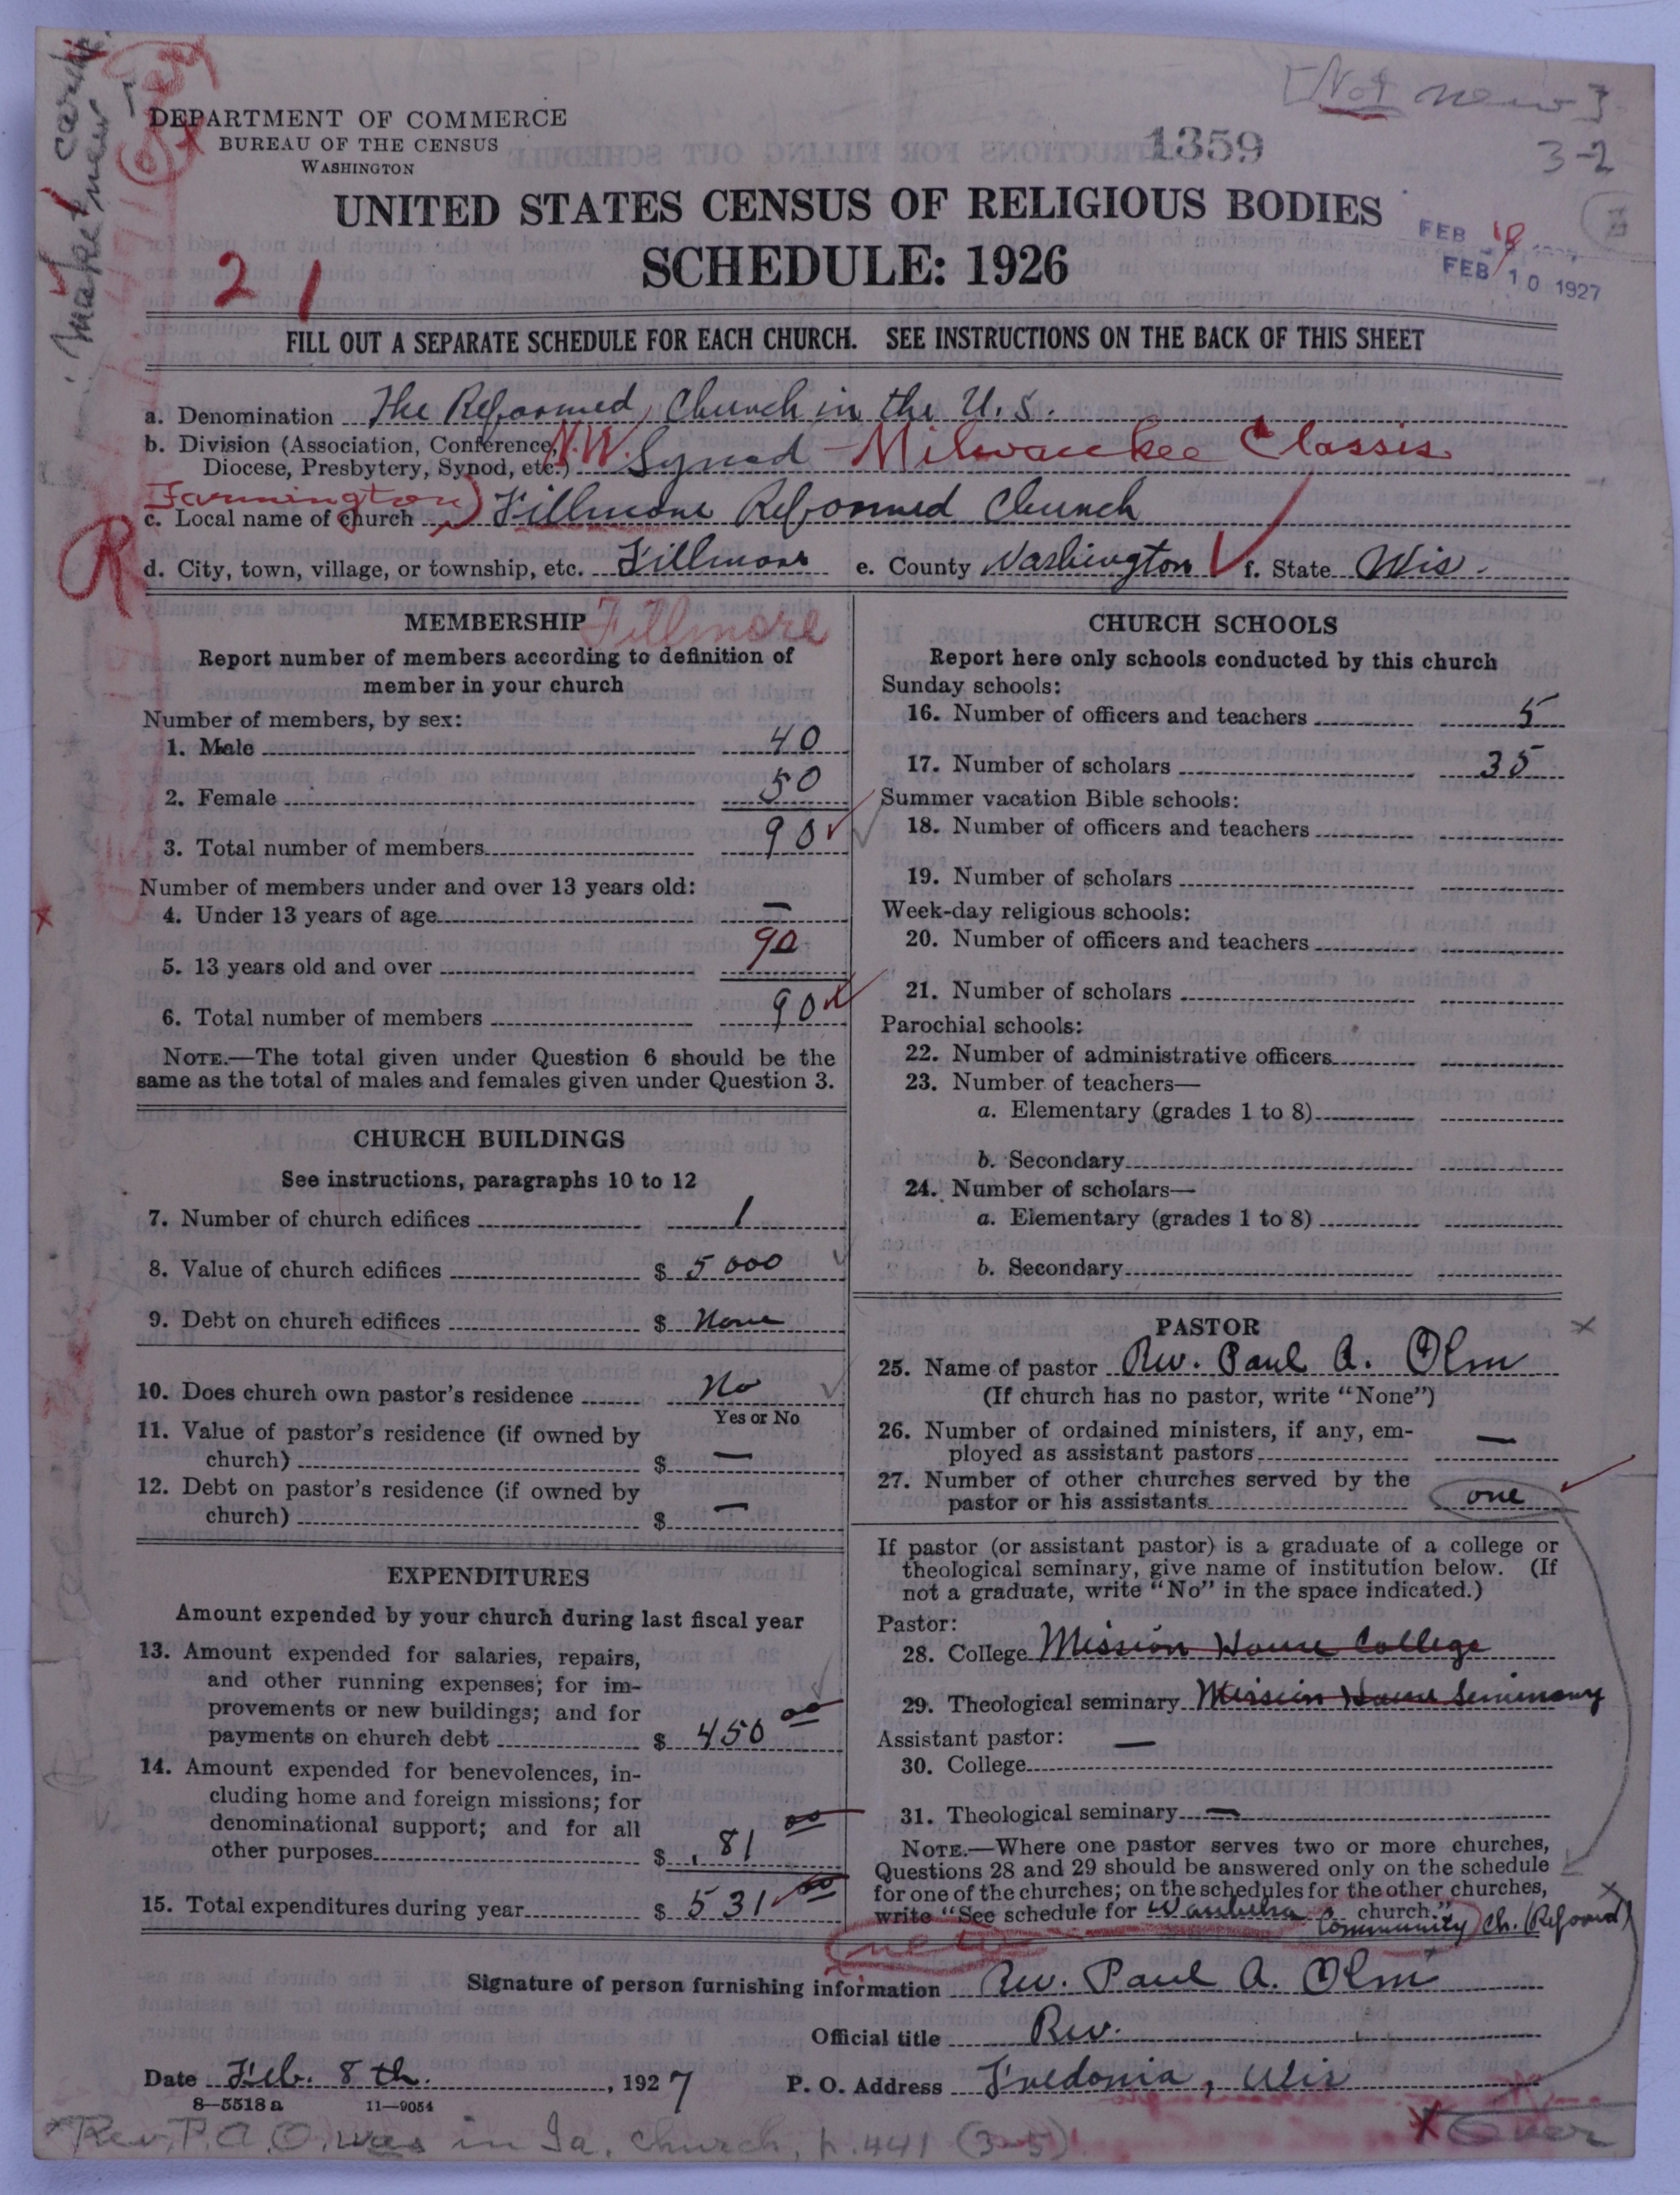 [Not new]
3-2
Make new card
DEPARTMENT OF COMMERCE
BUREAU OF THE CENSUS
WASHINGTON
1359
UNITED STATES CENSUS OF RELIGIOUS BODIES
SCHEDULE: 1926
FEB 10 1927
21
FILL OUT A SEPARATE SCHEDULE FOR EACH CHURCH. SEE INSTRUCTIONS ON THE BACK OF THIS SHEET
a. Denomination The Reformed Church in the U. S.
b. Division (Association, Conference,
Diocese, Presbytery, Synod, etc.) N.W. Synod - Milwaukee Classis
Farmington)
c. Local name of church Fillmore Reformed Church
R
d. City, town, village, or township, etc. Fillmore e. County Washington f. State Wis.
MEMBERSHIP Fillmore
Report number of members according to definition of
member in your church
Number of members, by sex:
1. Male 40
2. Female 50
3. Total number of members 90
Number of members under and over 13 years old:
4. Under 13 years of age —
5. 13 years old and over 90
6. Total number of members 90
NOTE.—The total given under Question 6 should be the
same as the total of males and females given under Question 3.
CHURCH BUILDINGS
See instructions, paragraphs 10 to 12
7. Number of church edifices 1
8. Value of church edifices $ 5000
9. Debt on church edifices $ None
10. Does church own pastor's residence No
Yes or No
11. Value of pastor's residence (if owned by
church) $ —
12. Debt on pastor's residence (if owned by
church) $ —
EXPENDITURES
Amount expended by your church during last fiscal year
13. Amount expended for salaries, repairs,
and other running expenses; for im-
provements or new buildings; and for
payments on church debt $ 450 00
14. Amount expended for benevolences, in-
cluding home and foreign missions; for
denominational support; and for all
other purposes $ 81 00
15. Total expenditures during year $ 531 00
CHURCH SCHOOLS
Report here only schools conducted by this church
Sunday schools:
16. Number of officers and teachers 5
17. Number of scholars 35
Summer vacation Bible schools:
18. Number of officers and teachers
19. Number of scholars
Week-day religious schools:
20. Number of officers and teachers
21. Number of scholars
Parochial schools:
22. Number of administrative officers
23. Number of teachers—
a. Elementary (grades 1 to 8)
b. Secondary
24. Number of scholars—
a. Elementary (grades 1 to 8)
b. Secondary
PASTOR
25. Name of pastor Rev. Paul A. Olm
(If church has no pastor, write "None")
26. Number of ordained ministers, if any, em-
ployed as assistant pastors —
27. Number of other churches served by the
pastor or his assistants one
If pastor (or assistant pastor) is a graduate of a college or
theological seminary, give name of institution below. (If
not a graduate, write "No" in the space indicated.)
Pastor:
28. College Mission House College
29. Theological seminary Mission House Seminary
Assistant pastor: —
30. College
31. Theological seminary —
NOTE.—Where one pastor serves two or more churches,
Questions 28 and 29 should be answered only on the schedule
for one of the churches; on the schedules for the other churches,
write "See schedule for Waubeka church."
Community Ch. (Reformed)
new
Signature of person furnishing information Rev. Paul A. Olm
Official title Rev.
Date Feb. 8th., 1927 P. O. Address Fredonia, Wis
8—5518 a 11—9054
*Rev. P. A. O. was in Ia. church, p. 441 (3-5)
x Over